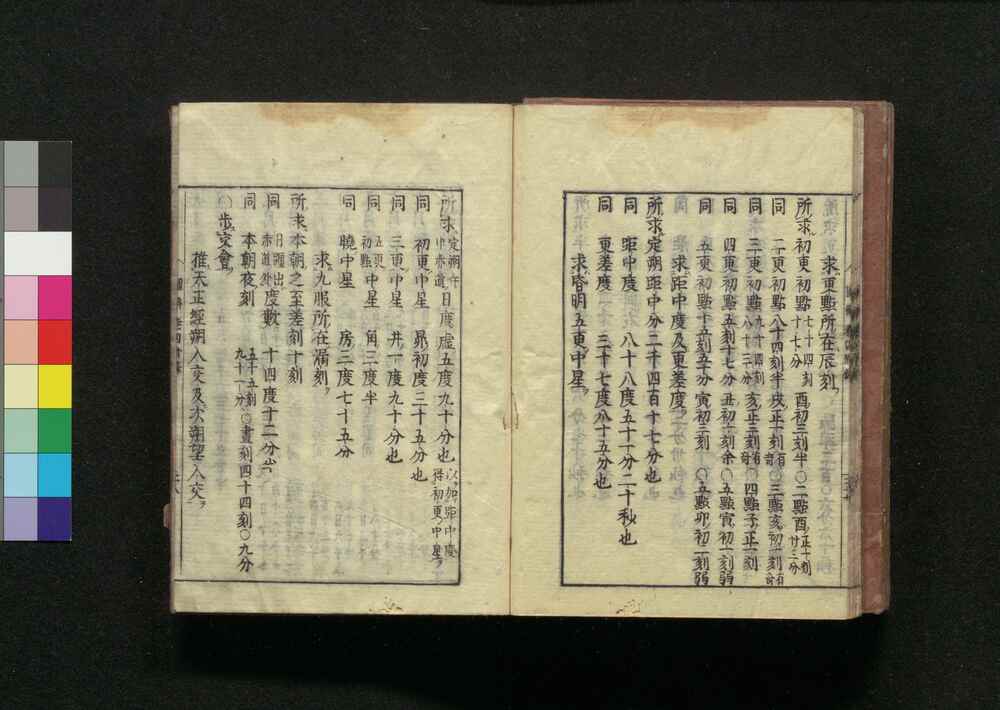 求更點所在辰刻
所求初更初點七十四刻十七分 酉初三刻半○二點酉正十刻廿三分
同 二更初點八十四刻半 戌正十刻有奇○三點亥初一刻有奇
同 三更初點九十四刻八十三分 亥正三刻有奇○四點子正一刻
同 四更初點五刻十七分 丑初十刻余○五點寅初一刻弱
同 五更初點十五刻五十分 寅初三刻○五點卯初一刻弱
求距中度及更差度
所求定朔距中分二千四百十七分也
同 距中度 八十八度五十一分二十秒也
同 更差度 三十七度八十五分也
求昏明五更中星
所求定朔午中赤道日度 虚五度九十分也以加距中度得初更中星
同 初更中星 昴初度三十五分也
同 三更中星 井一度九十分也
同 五更初點中星 角三度半
同 曉中星 房三度七十五分
求九服所在漏刻
所求本朝之至差刻十刻
同 日躔出赤道外度數 十四度十二分
同 本朝夜刻 五十五刻九十一分○晝刻四十四刻○九分
○歩交會
推天正經朔入交及次朔望入交